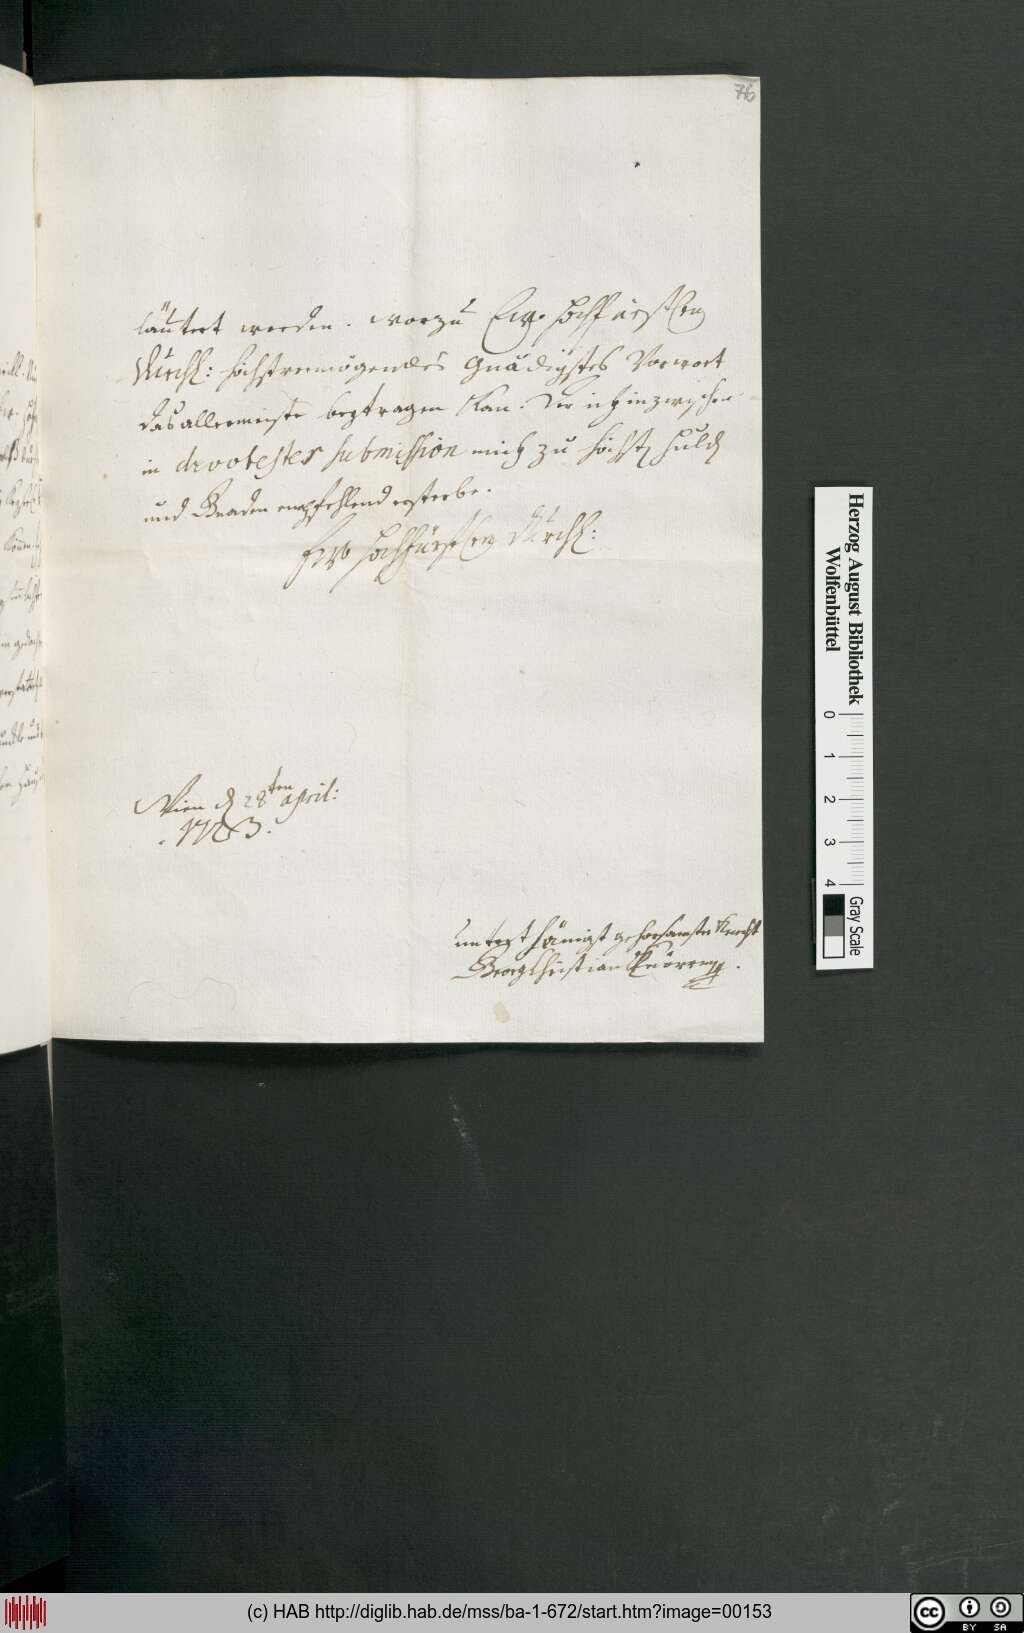 76
läutert werden. worzu Ew. Hochfürstlen
Durchl: höchstvermögendes Gnädigstes Vorwort
das allermeiste beytragen kan. Der ich inzwischen
in devotester submission mich zu höchster Huld
und Gnaden empfehlend ersterbe.
Ew Hochfürstlen Durchl:
Wien d 28ten april:
. 1723.
unterthänigst gehorsamster Knecht
Georg Christian Knörr
Herzog August Bibliothek
Wolfenbüttel
0 1 2 3 4
Gray Scale
(c) HAB http://diglib.hab.de/mss/ba-1-672/start.htm?image=00153
cc BY SA